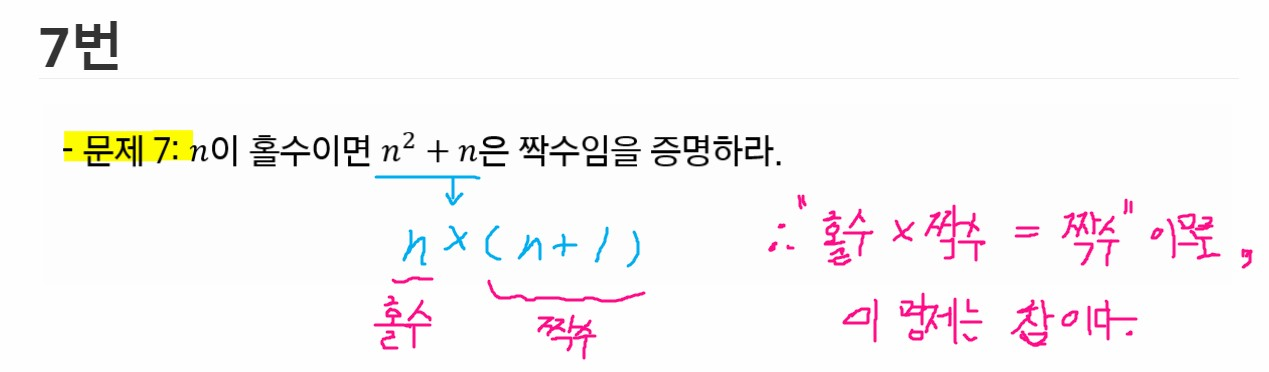 7번
- 문제 7: n이 홀수이면 n² + n은 짝수임을 증명하라.
n × (n + 1)
홀수
짝수
∴ "홀수 × 짝수 = 짝수" 이므로,
이 명제는 참이다.